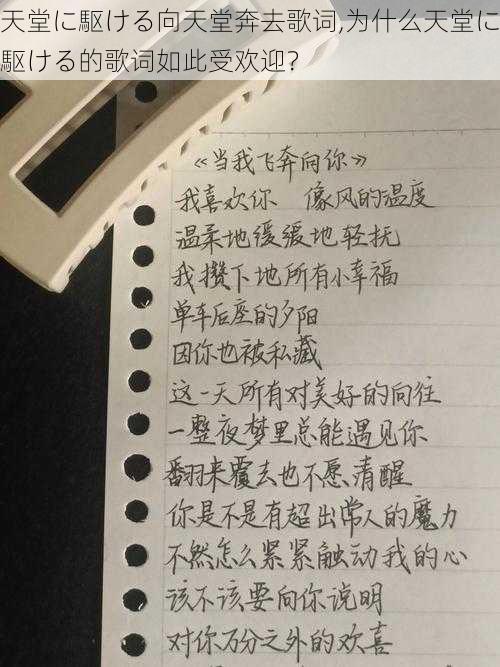 天堂に駆ける向天堂奔去歌词,为什么天堂に
駆ける的歌词如此受欢迎?
《当我飞奔向你》
我喜欢你 像风的温度
温柔地缓缓地轻抚
我攒下地所有小幸福
单车后座的夕阳
因你也被私藏
这一天所有对美好的向往
一整夜梦里总能遇见你
翻来覆去也不愿清醒
你是不是有超出常人的魔力
不然怎么紧紧触动我的心
该不该要向你说明
对你万分之外的欢喜